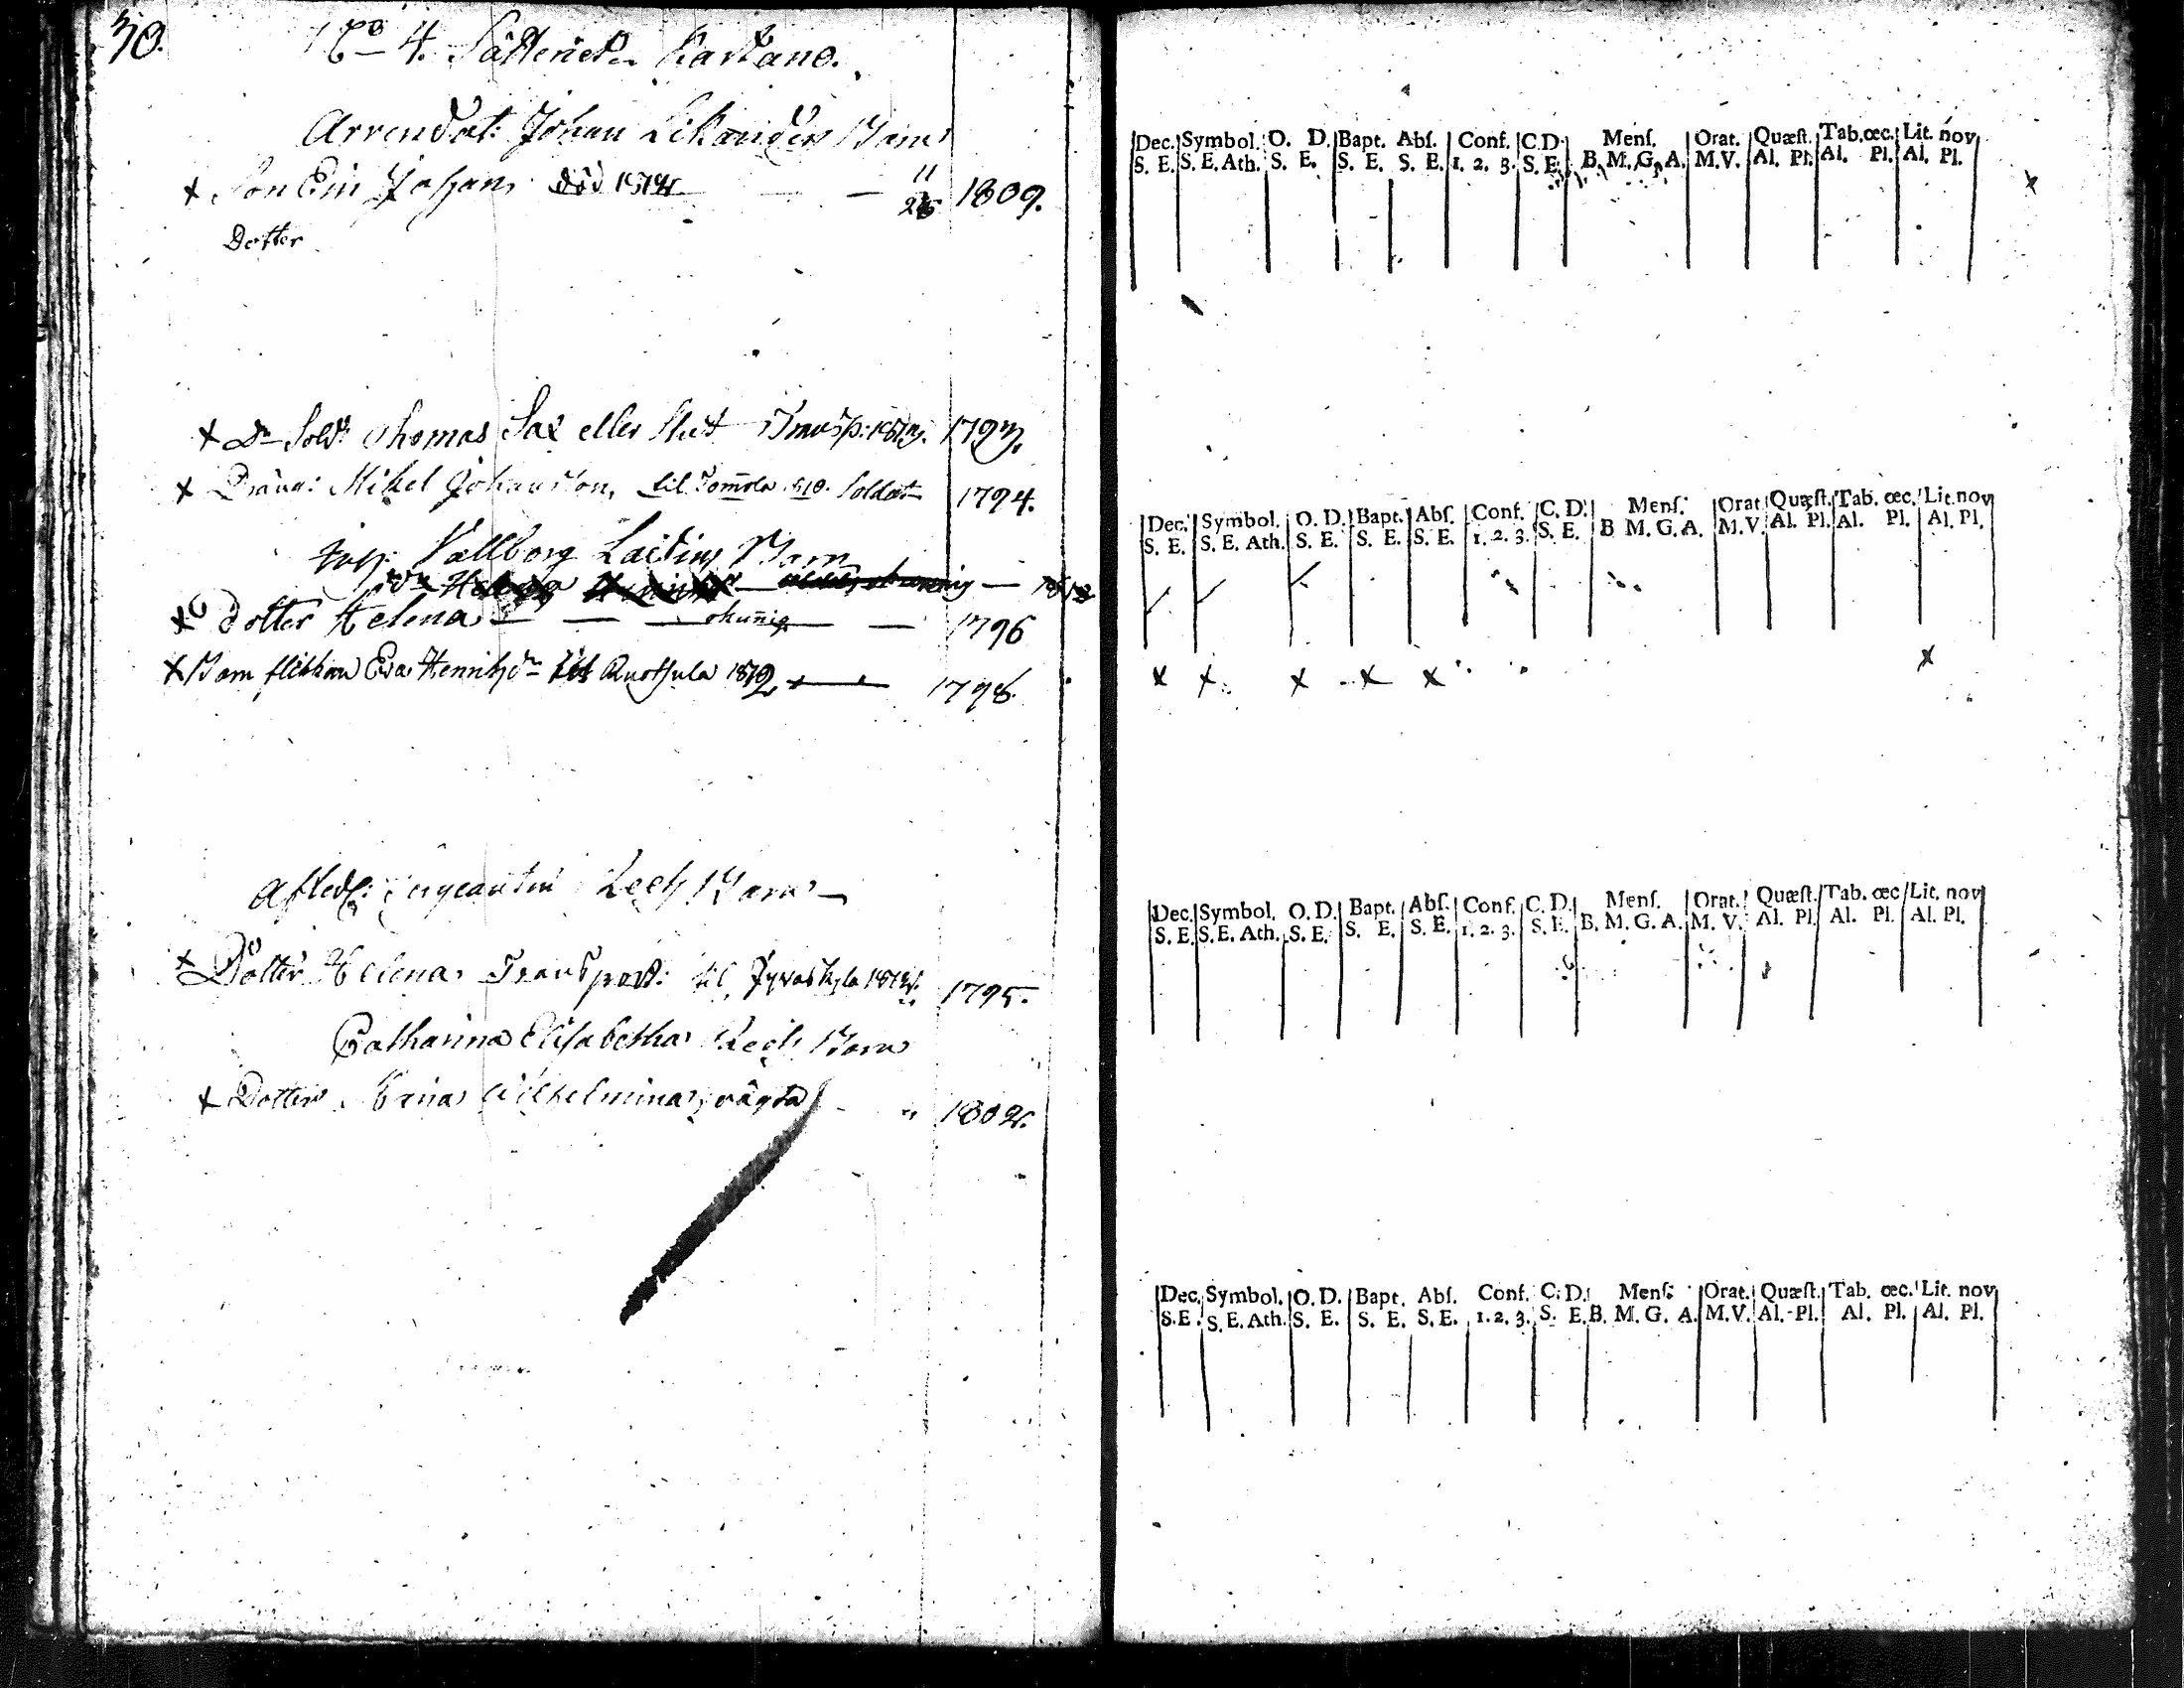 No 4. Säteriet Kartano.
Arrendat: Johan Likanders Barn
x Son Eric Johan, död 1812 — — 11/26 1809.
Dotter
x Dn Sold: Thomas Sax eller Transp: 1793.
x Dräng: Mikel Johansson, til Tomola 1810. Soldat 1794.
Vallborg Laitins Barn
x Dotter Helena — — okunnig — — 1796
x Barn flickan Eva Henrichsdr til Ruothula 1812 — 1798.
Afsked: Sergeanten Barn —
x Dotter Helena Transport: til Jyväskylä 1795.
Catharina Elisabetha Barn
x Dotter Wilhelmina 1802.
Dec. Symbol. O. D. Bapt. Abſ. Conf. C.D. Menſ. Orat. Quæſt. Tab. œc. Lit. nov
S. E. S. E. Ath. S. E. S. E. S. E. 1. 2. 3. S. E. B. M. G. A. M.V. Al. Pl. Al. Pl. Al. Pl.
x
Dec. Symbol. O. D. Bapt. Abſ. Conf. C. D. Menſ. Orat. Quæſt. Tab. œc. Lit. nov
S. E. S. E. Ath. S. E. S. E. S. E. 1. 2. 3. S. E. B M. G. A. M.V. Al. Pl. Al. Pl. Al. Pl.
x x x x x x
Dec. Symbol. O. D. Bapt. Abſ. Conf. C. D. Menſ. Orat. Quæſt. Tab. œc Lit. nov
S. E. S. E. Ath. S. E. S. E. S. E. 1. 2. 3. S. E. B. M. G. A. M. V. Al. Pl. Al. Pl. Al. Pl.
Dec. Symbol. O. D. Bapt. Abſ. Conf. C. D. Menſ. Orat. Quæſt. Tab. œc. Lit. nov
S. E. S. E. Ath. S. E. S. E. S. E. 1. 2. 3. S. E. B. M. G. A. M.V. Al. Pl. Al. Pl. Al. Pl.